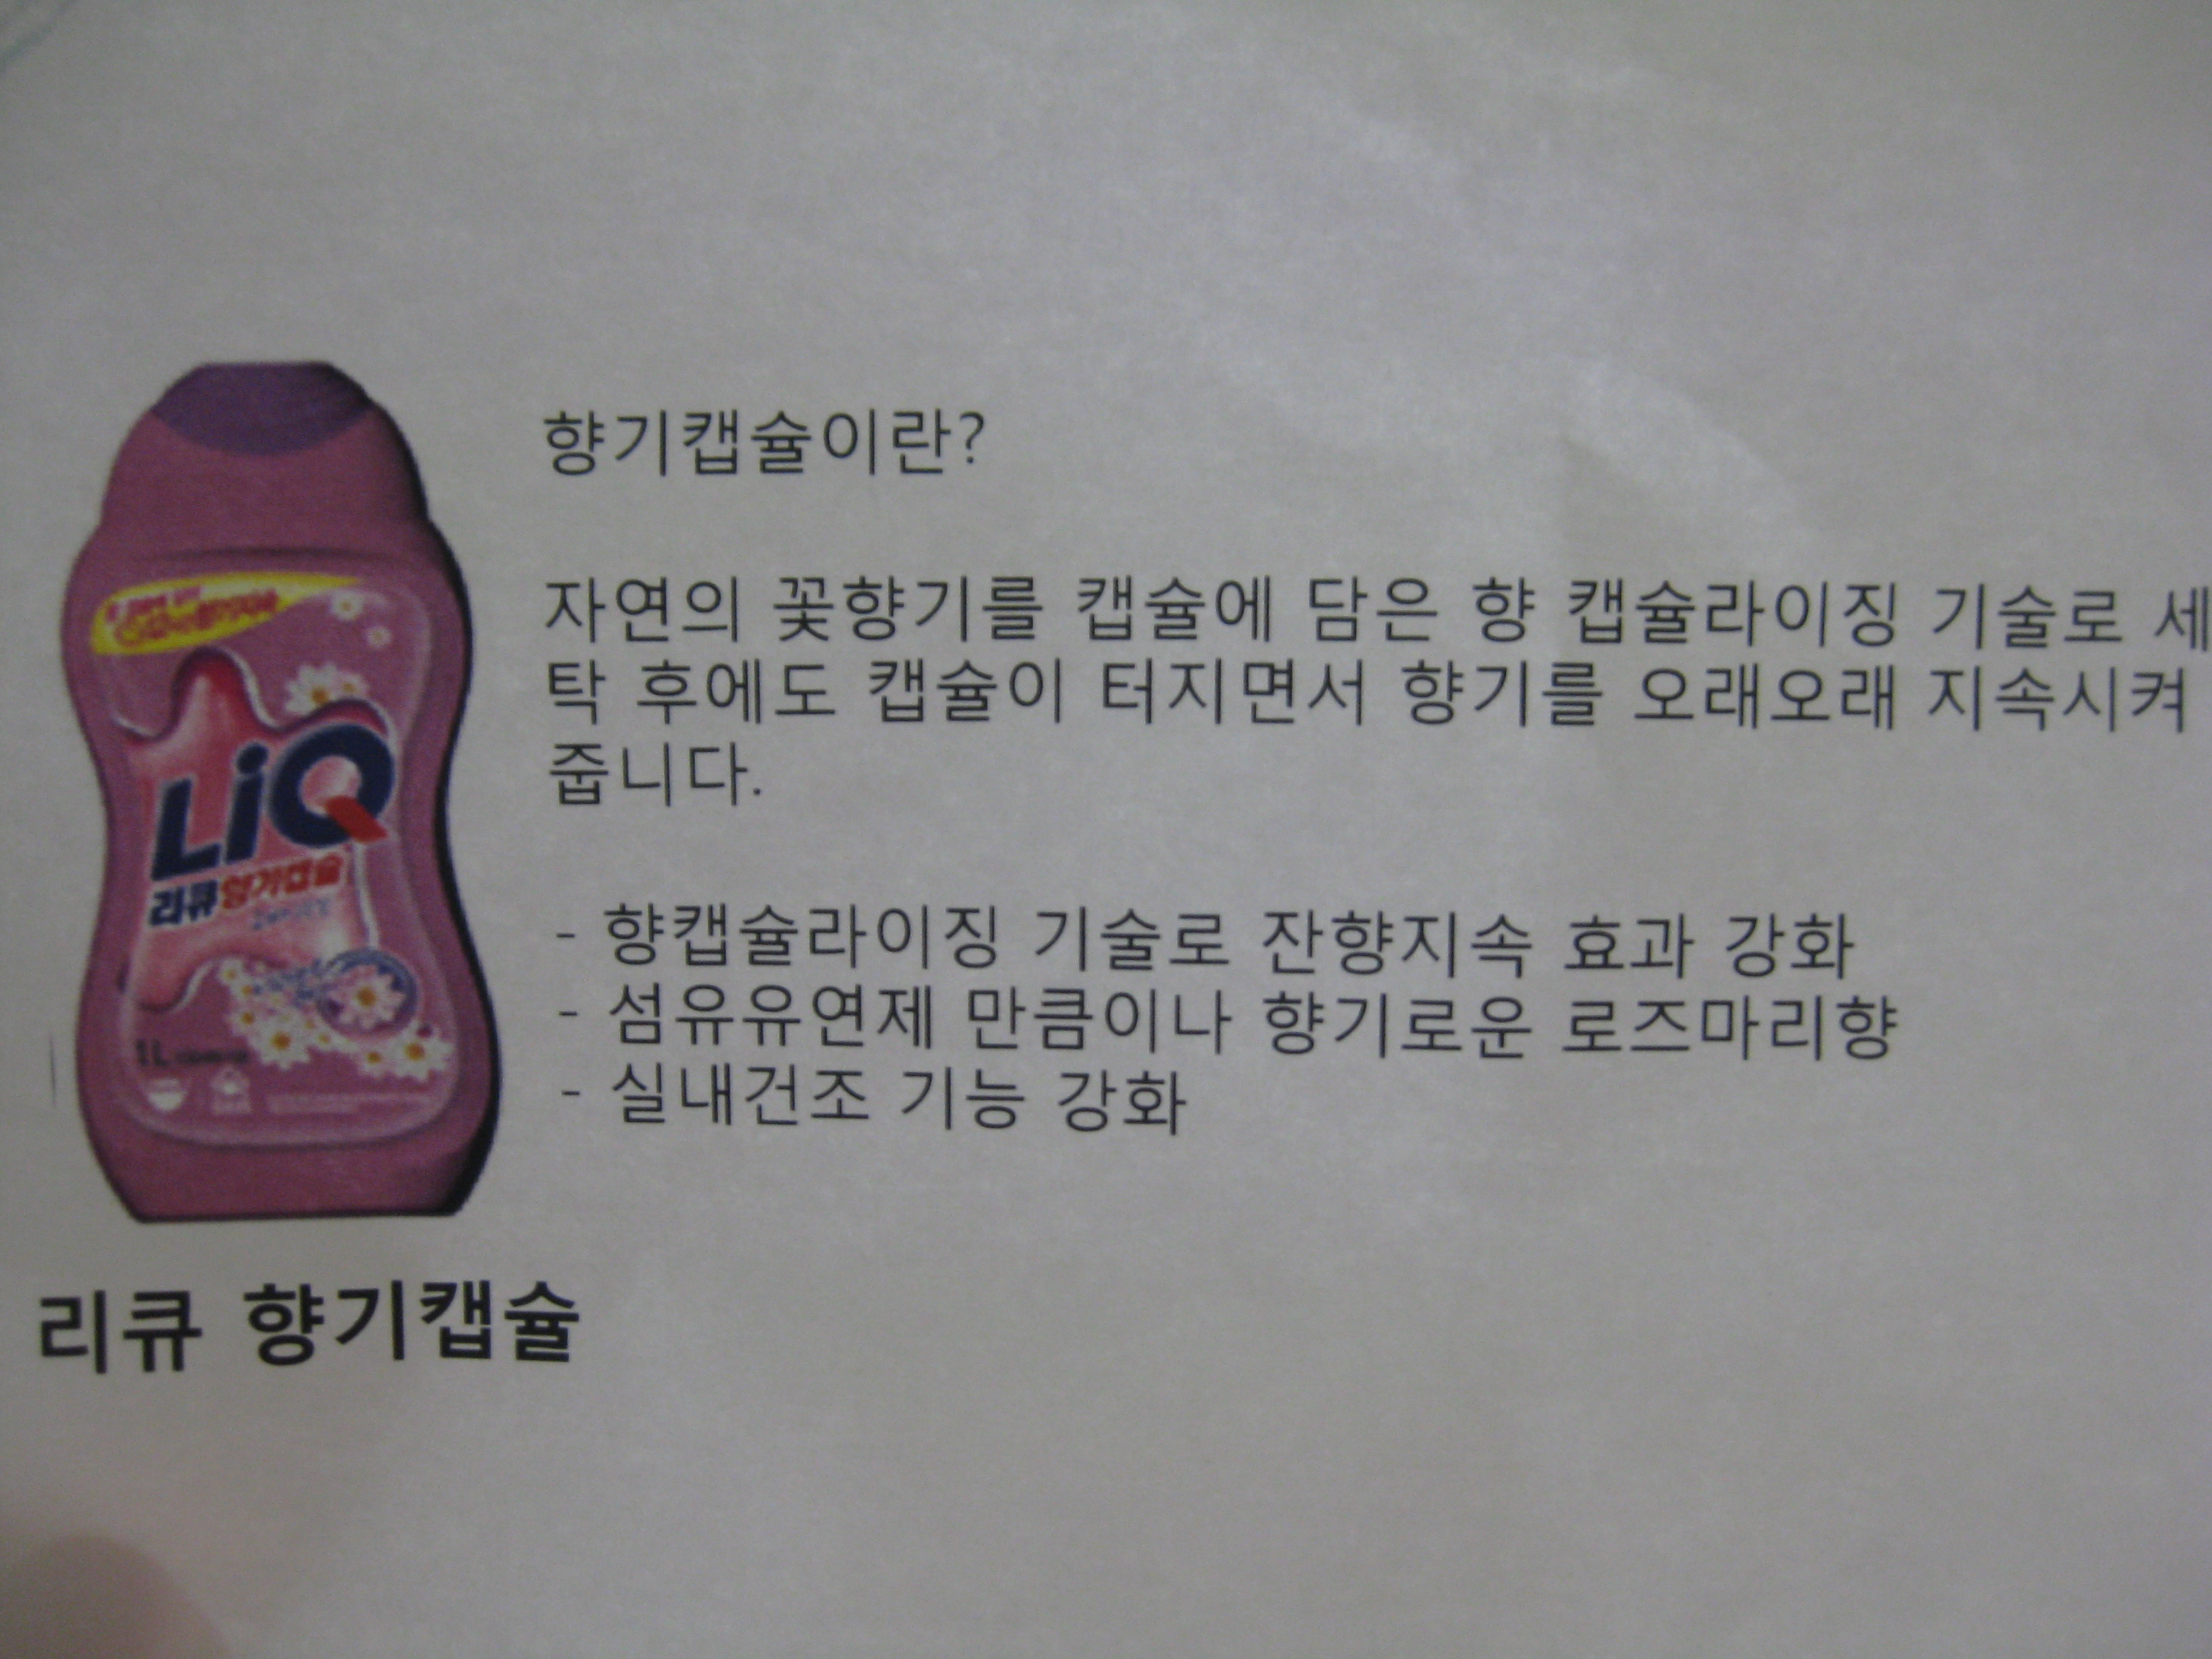 향기캡슐이란?
자연의 꽃향기를 캡슐에 담은 향 캡슐라이징 기술로 세
탁 후에도 캡슐이 터지면서 향기를 오래오래 지속시켜
줍니다.
- 향캡슐라이징 기술로 잔향지속 효과 강화
- 섬유유연제 만큼이나 향기로운 로즈마리향
- 실내건조 기능 강화
LiQ
리큐 향기캡슐
1L
리큐 향기캡슐